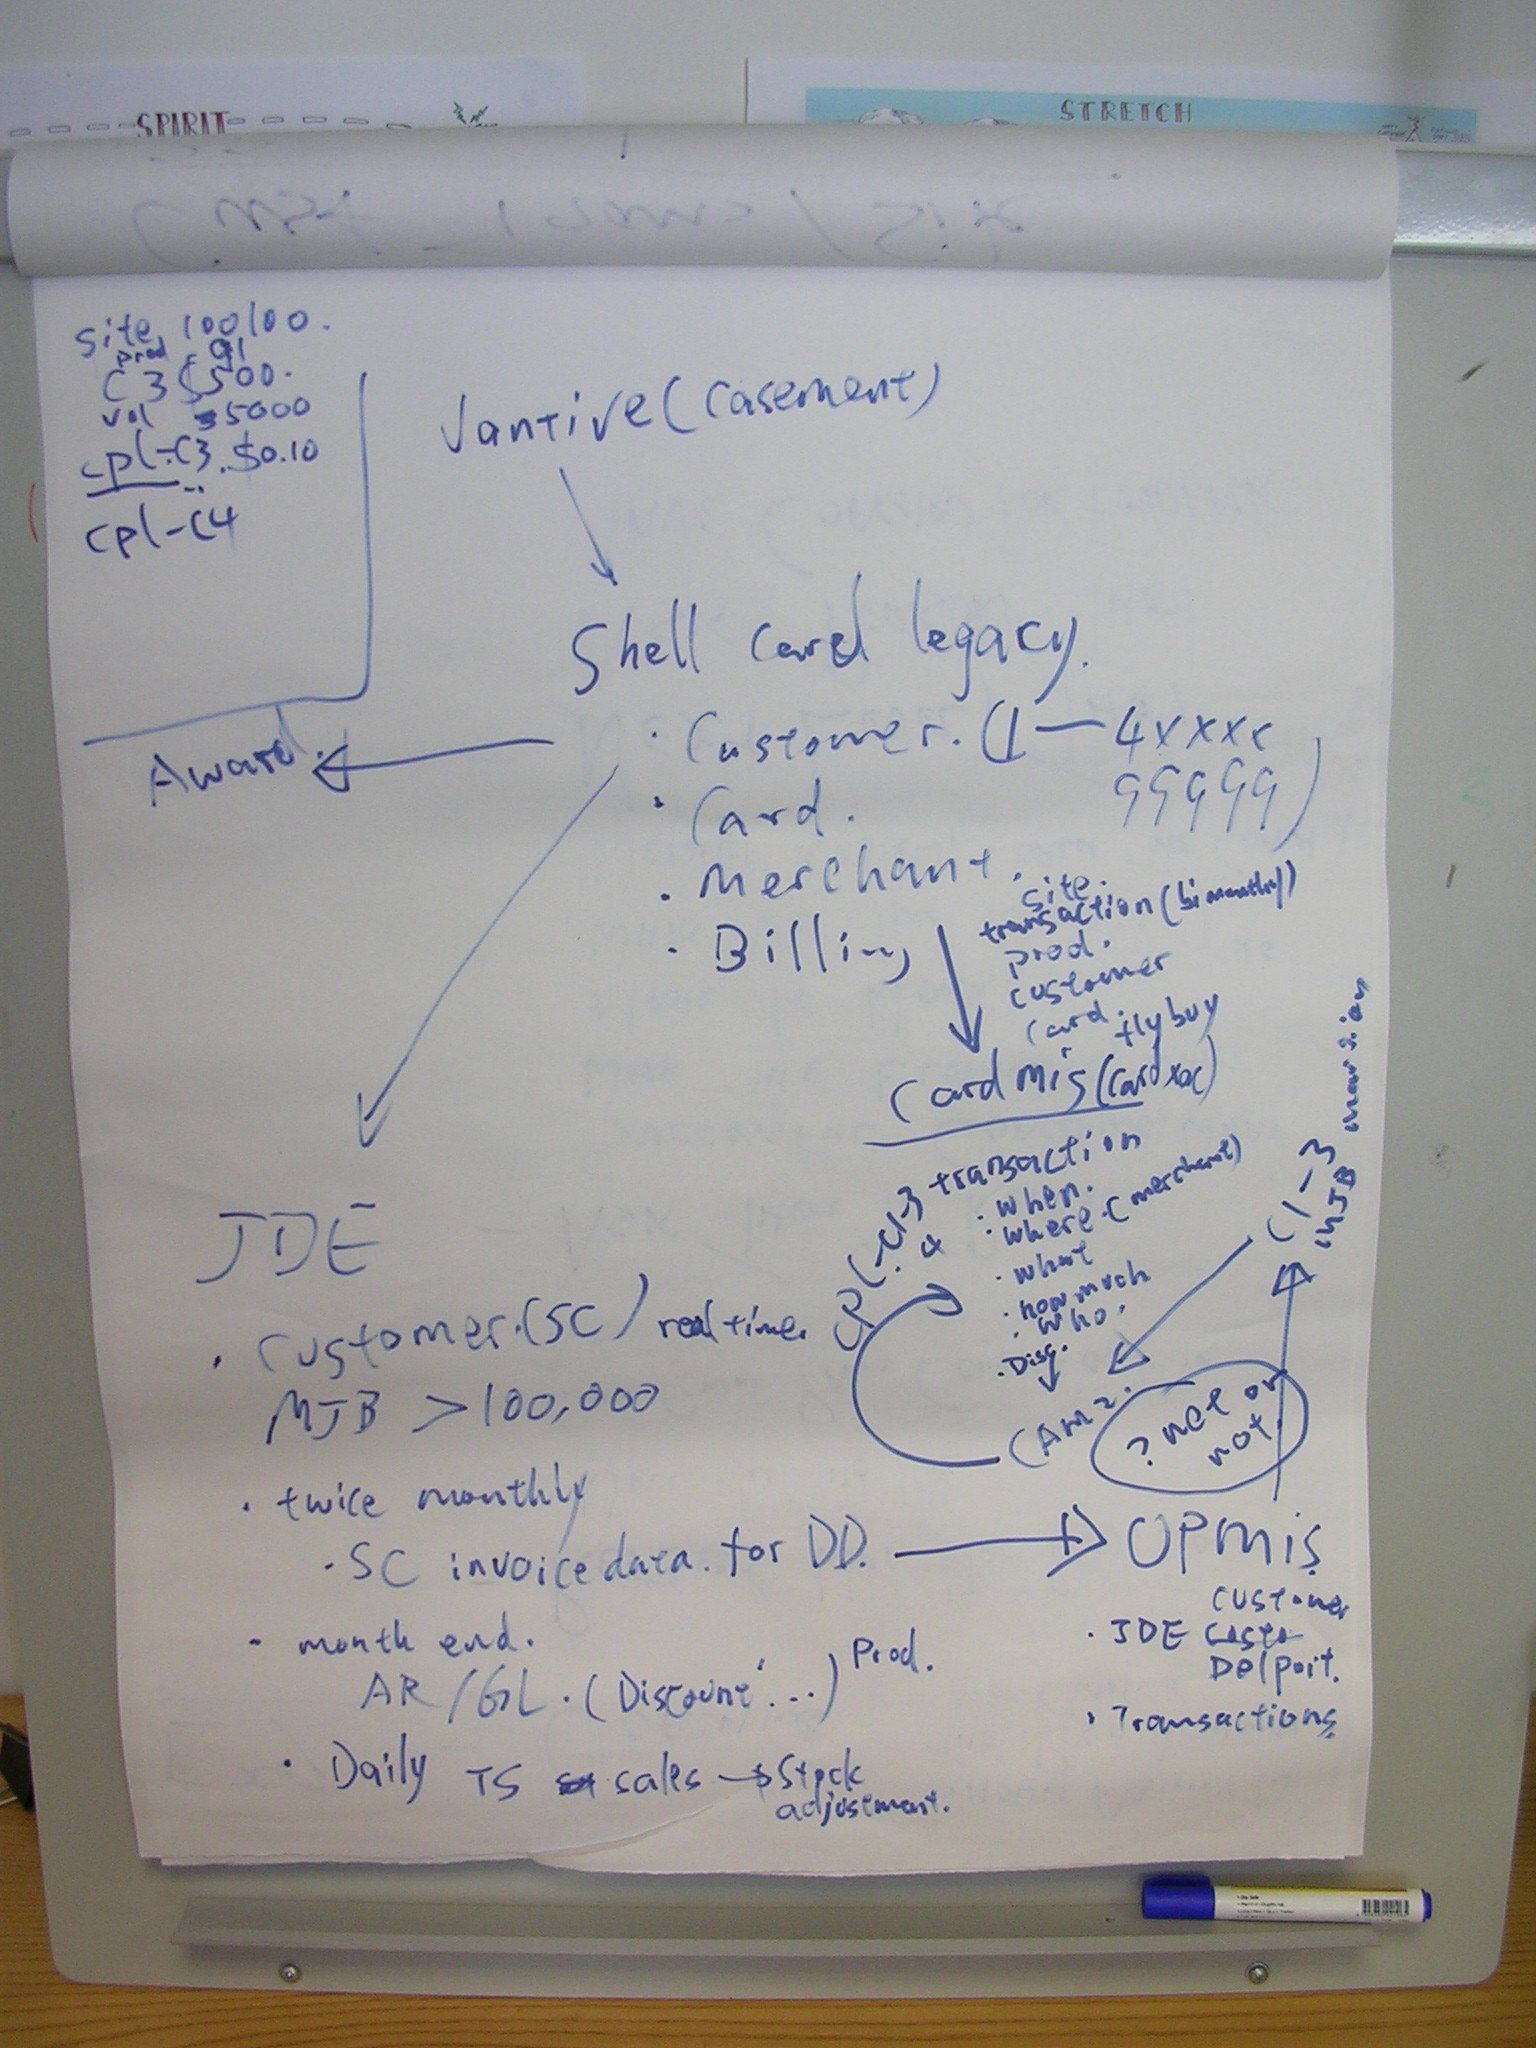 SPIRIT
STRETCH
site 100100.
prod 91
C3 $500.
vol 5000
cpl-C3. $0.10
cpl-C4
Vantive (casement)
Shell card legacy.
Award.
· Customer. (1 — 4xxxx
99999)
· Card.
· Merchant.
· Billing
site.
transaction (bimonthly)
prod.
customer
card. flybuy
Cardmis (card xx)
transaction
· when.
· where. (merchant)
· what
· how much
· who.
· Disc.
C1-3
4
C1-3
in JB
CAM2.
? net or
not.
JDE
· Customer. (SC) real time.
MJB > 100,000
· twice monthly
· SC invoice data. for DD.
OPmis
customer
· JDE
Delpoit.
· Transactions
· month end.
AR/GL. (Discount...) Prod.
· Daily TS sales → Stock
adjustment.